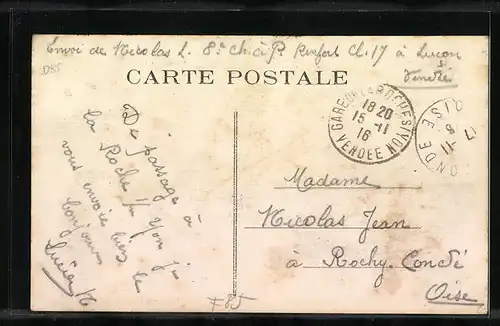 Envoi de Nicolas L. 8e Ch. à P. Renfort Cl. 17 à Luçon
Vendée
D85
CARTE POSTALE
De passage à
la Roche s/ Yon je
vous envoie bien le
bonjour
Lucien N
GARE DE LA ROCHE S/YON
18 20
15-11
16
VENDEE
OISE
17
11
ONDE
Madame
Nicolas Jean
à Rochy-Condé
Oise
F85